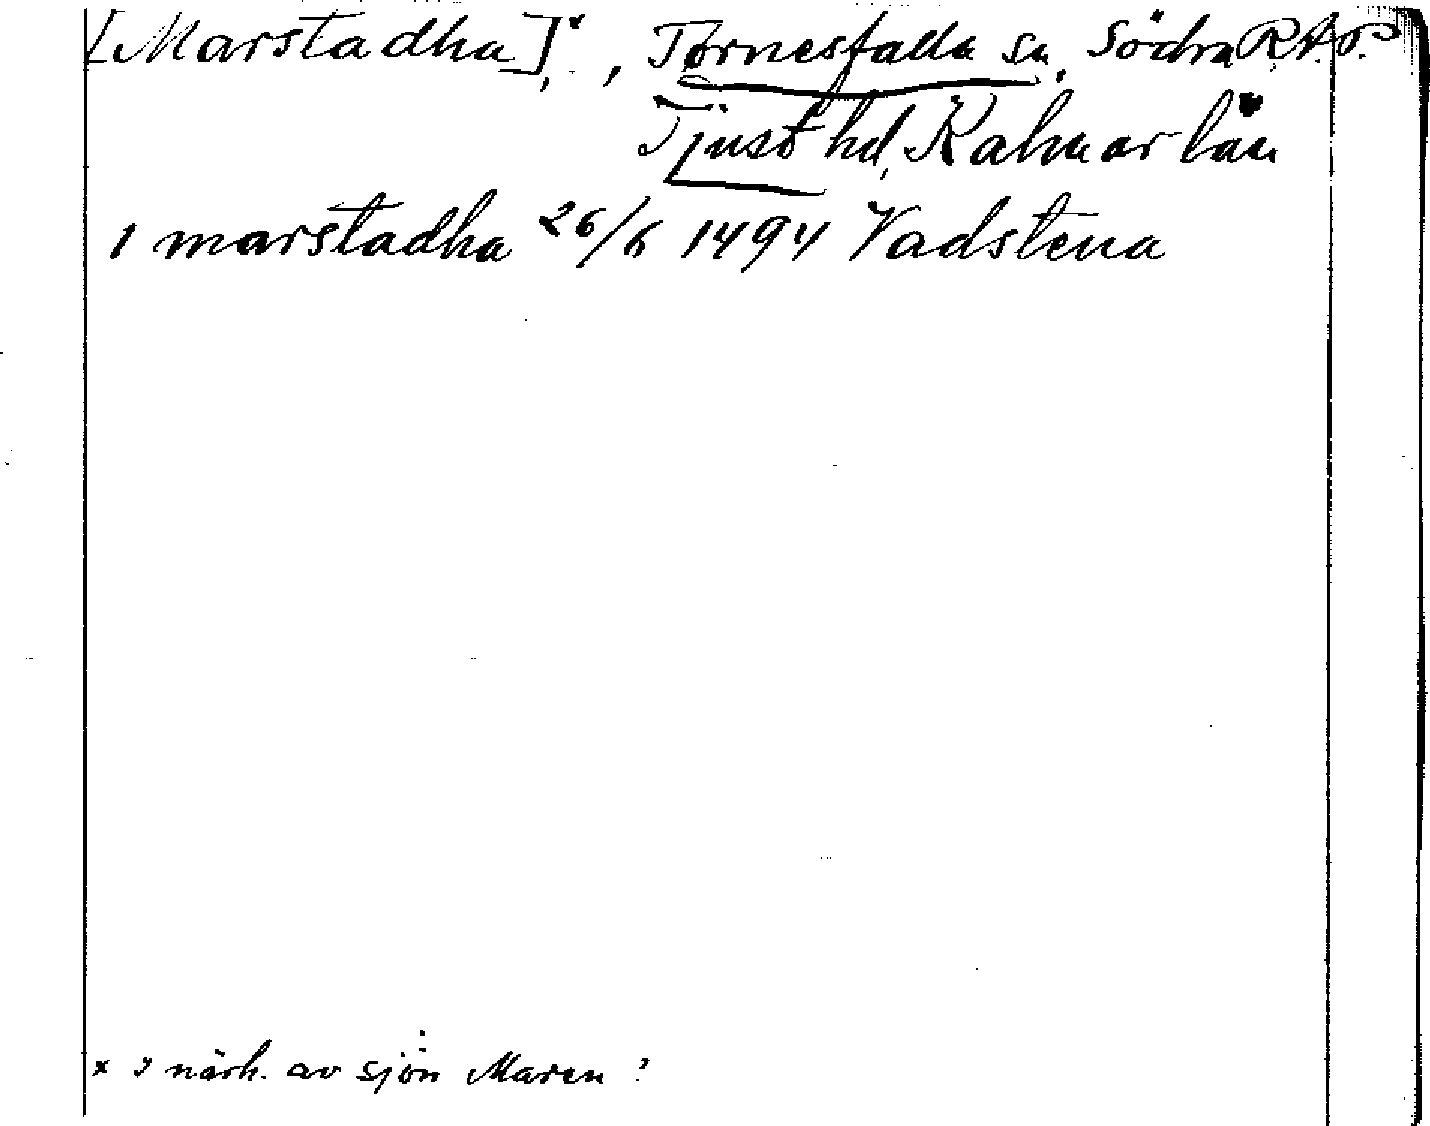 [Marstadha]ˣ, Törnesfalla sn, Södra R.A.P.
Tjust hd, Kalmar län
i marstadha 26/6 1494 Vadstena
x I närh. av sjön Maren?